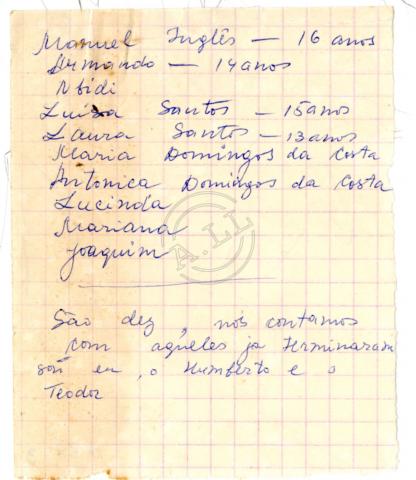 Manuel Inglês — 16 anos
Armando — 14 anos
Nbidi
Luisa Santos — 15 anos
Laura Santos — 13 anos
Maria Domingos da Costa
Antonica Domingos da Costa
Lucinda
Mariana
Joaquim
A.LL
São dez, nós contamos
com aqueles ja terminaram
eu, o Humberto e o
Teodor